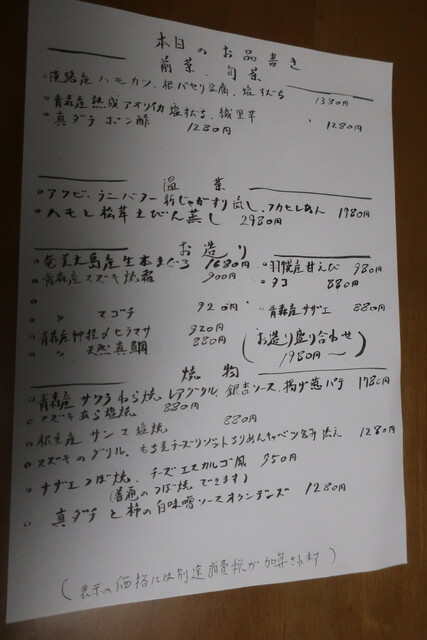 本日のお品書き
前菜・旬菜
淡路産ハモカツ、根パセリ豆腐、塩すだち 1380円
青森産熟成アオリイカ 塩すだち、
真ダチ ポン酢 1280円 1280円
温菜
アワビ、ウニバター 新じゃがすり流し、フカヒレあん 1980円
ハモと松茸土びん蒸し 2980円
お造り
奄美大島産生本まぐろ 1680円
羽幌産甘えび 980円
青森産スズキ焼霜 900円
タコ 880円
〃 マゴチ 920円
青森産サザエ 880円
青森産神経〆ヒラマサ 920円
〃 天然真鯛 880円
(お造り盛り合わせ 1980円〜)
焼物
青森産サクラわら焼レアグリル、銀杏ソース、揚げ 1780円
スズキあら塩焼 880円
根室産 サンマ塩焼 880円
スズキのグリル、もち麦チーズリゾット ちりめんキャベツ 添え 1280円
サザエつぼ焼、チーズエスカルゴ風 950円
(普通のつぼ焼できます)
真ダチと柿の白味噌ソースオランデーズ 1280円
(表示の価格には別途消費税が加算され)